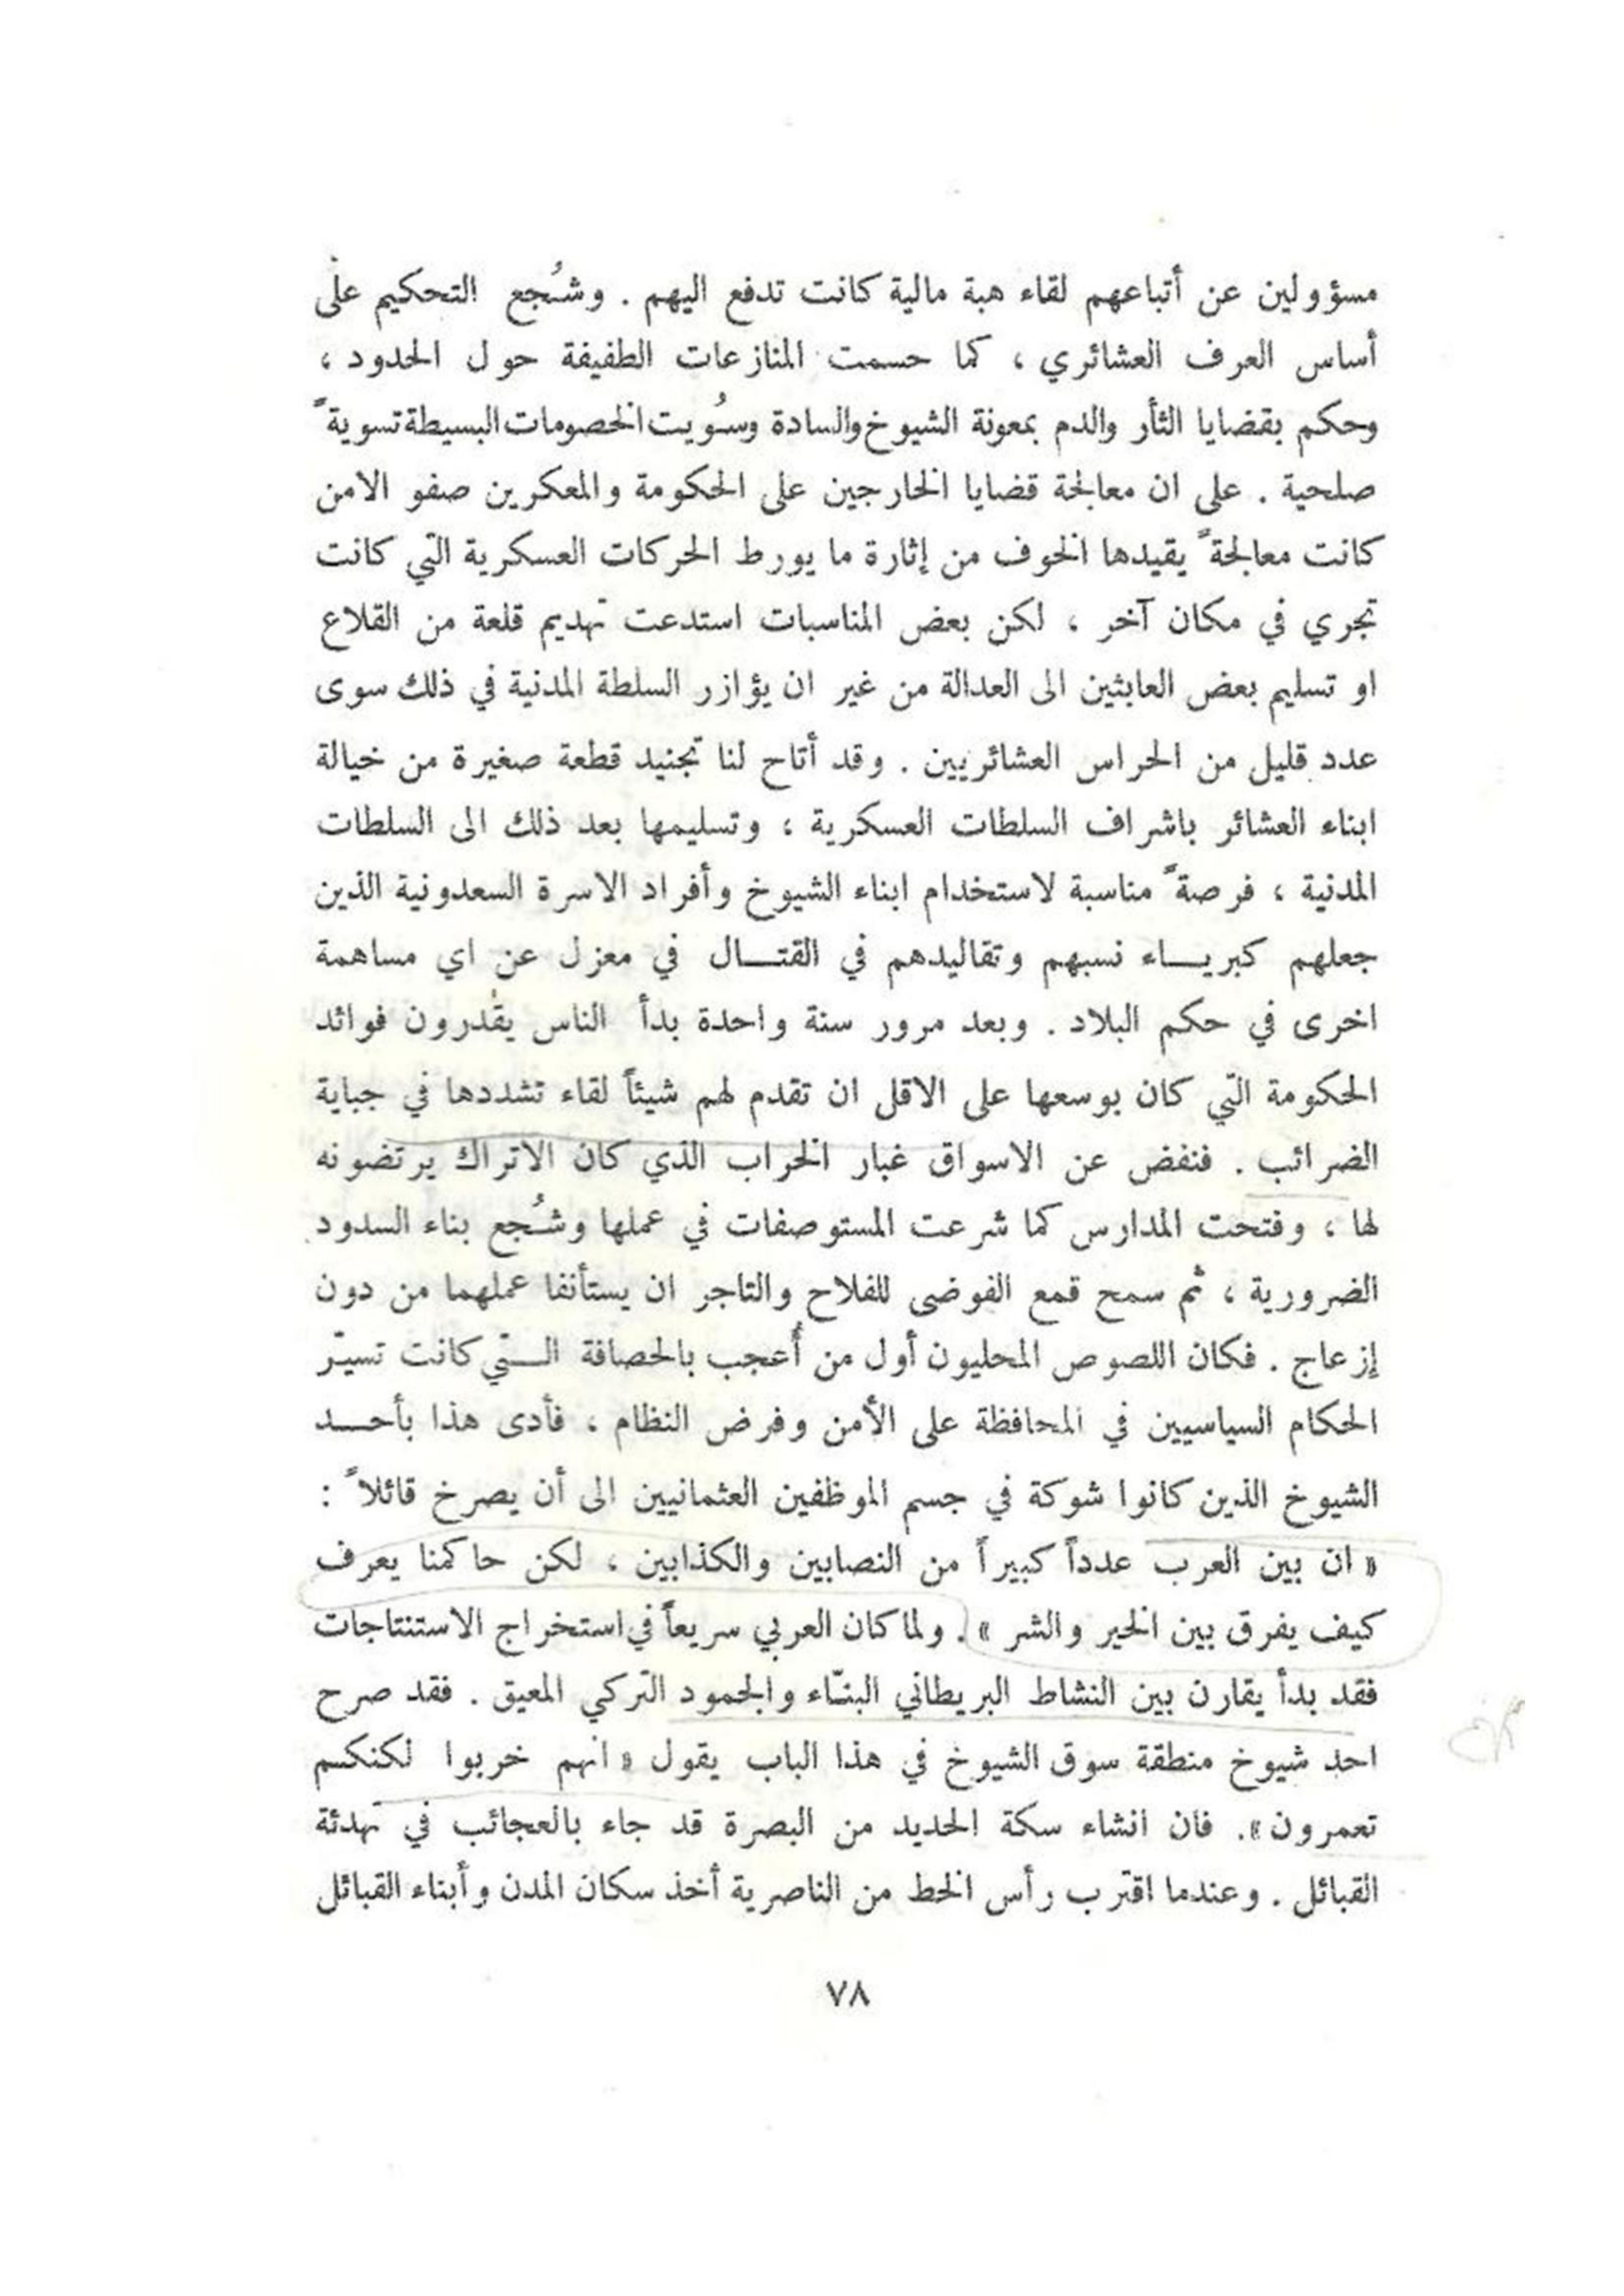 مسؤولين عن أتباعهم لقاء هبة مالية كانت تدفع اليهم . وشُجع التحكيم على
أساس العرف العشائري ، كما حسمت المنازعات الطفيفة حول الحدود ،
وحكم بقضايا الثأر والدم بمعونة الشيوخ والسادة وسُويت الخصومات البسيطة تسويةً
صلحية . على ان معالجة قضايا الخارجين على الحكومة والمعكرين صفو الامن
كانت معالجةً يقيدها الخوف من إثارة ما يورط الحركات العسكرية التي كانت
تجري في مكان آخر ، لكن بعض المناسبات استدعت تهديم قلعة من القلاع
او تسليم بعض العابثين الى العدالة من غير ان يؤازر السلطة المدنية في ذلك سوى
عدد قليل من الحراس العشائريين . وقد أتاح لنا تجنيد قطعة صغيرة من خيالة
ابناء العشائر باشراف السلطات العسكرية ، وتسليمها بعد ذلك الى السلطات
المدنية ، فرصةً مناسبة لاستخدام ابناء الشيوخ وأفراد الاسرة السعدونية الذين
جعلهم كبريـــاء نسبهم وتقاليدهم في القتـــال في معزل عن اي مساهمة
اخرى في حكم البلاد . وبعد مرور سنة واحدة بدأ الناس يقدرون فوائد
الحكومة التي كان بوسعها على الاقل ان تقدم لهم شيئاً لقاء تشددها في جباية
الضرائب . فنفض عن الاسواق غبار الخراب الذي كان الاتراك يرتضونه
لها ، وفتحت المدارس كما شرعت المستوصفات في عملها وشُجع بناء السدود
الضرورية ، ثم سمح قمع الفوضى للفلاح والتاجر ان يستأنفا عملهما من دون
إزعاج . فكان اللصوص المحليون أول من أُعجب بالحصافة الـــتي كانت تسيّر
الحكام السياسيين في المحافظة على الأمن وفرض النظام ، فأدى هذا بأحـــد
الشيوخ الذين كانوا شوكة في جسم الموظفين العثمانيين الى أن يصرخ قائلاً :
« ان بين العرب عدداً كبيراً من النصابين والكذابين ، لكن حاكمنا يعرف
كيف يفرق بين الخير والشر » . ولما كان العربي سريعاً في استخراج الاستنتاجات
فقد بدأ يقارن بين النشاط البريطاني البنّاء والجمود التركي المعيق . فقد صرح
احد شيوخ منطقة سوق الشيوخ في هذا الباب يقول « انهم خربوا لكنكم
تعمرون ». فان انشاء سكة الحديد من البصرة قد جاء بالعجائب في تهدئة
القبائل . وعندما اقترب رأس الخط من الناصرية أخذ سكان المدن وأبناء القبائل
٧٨